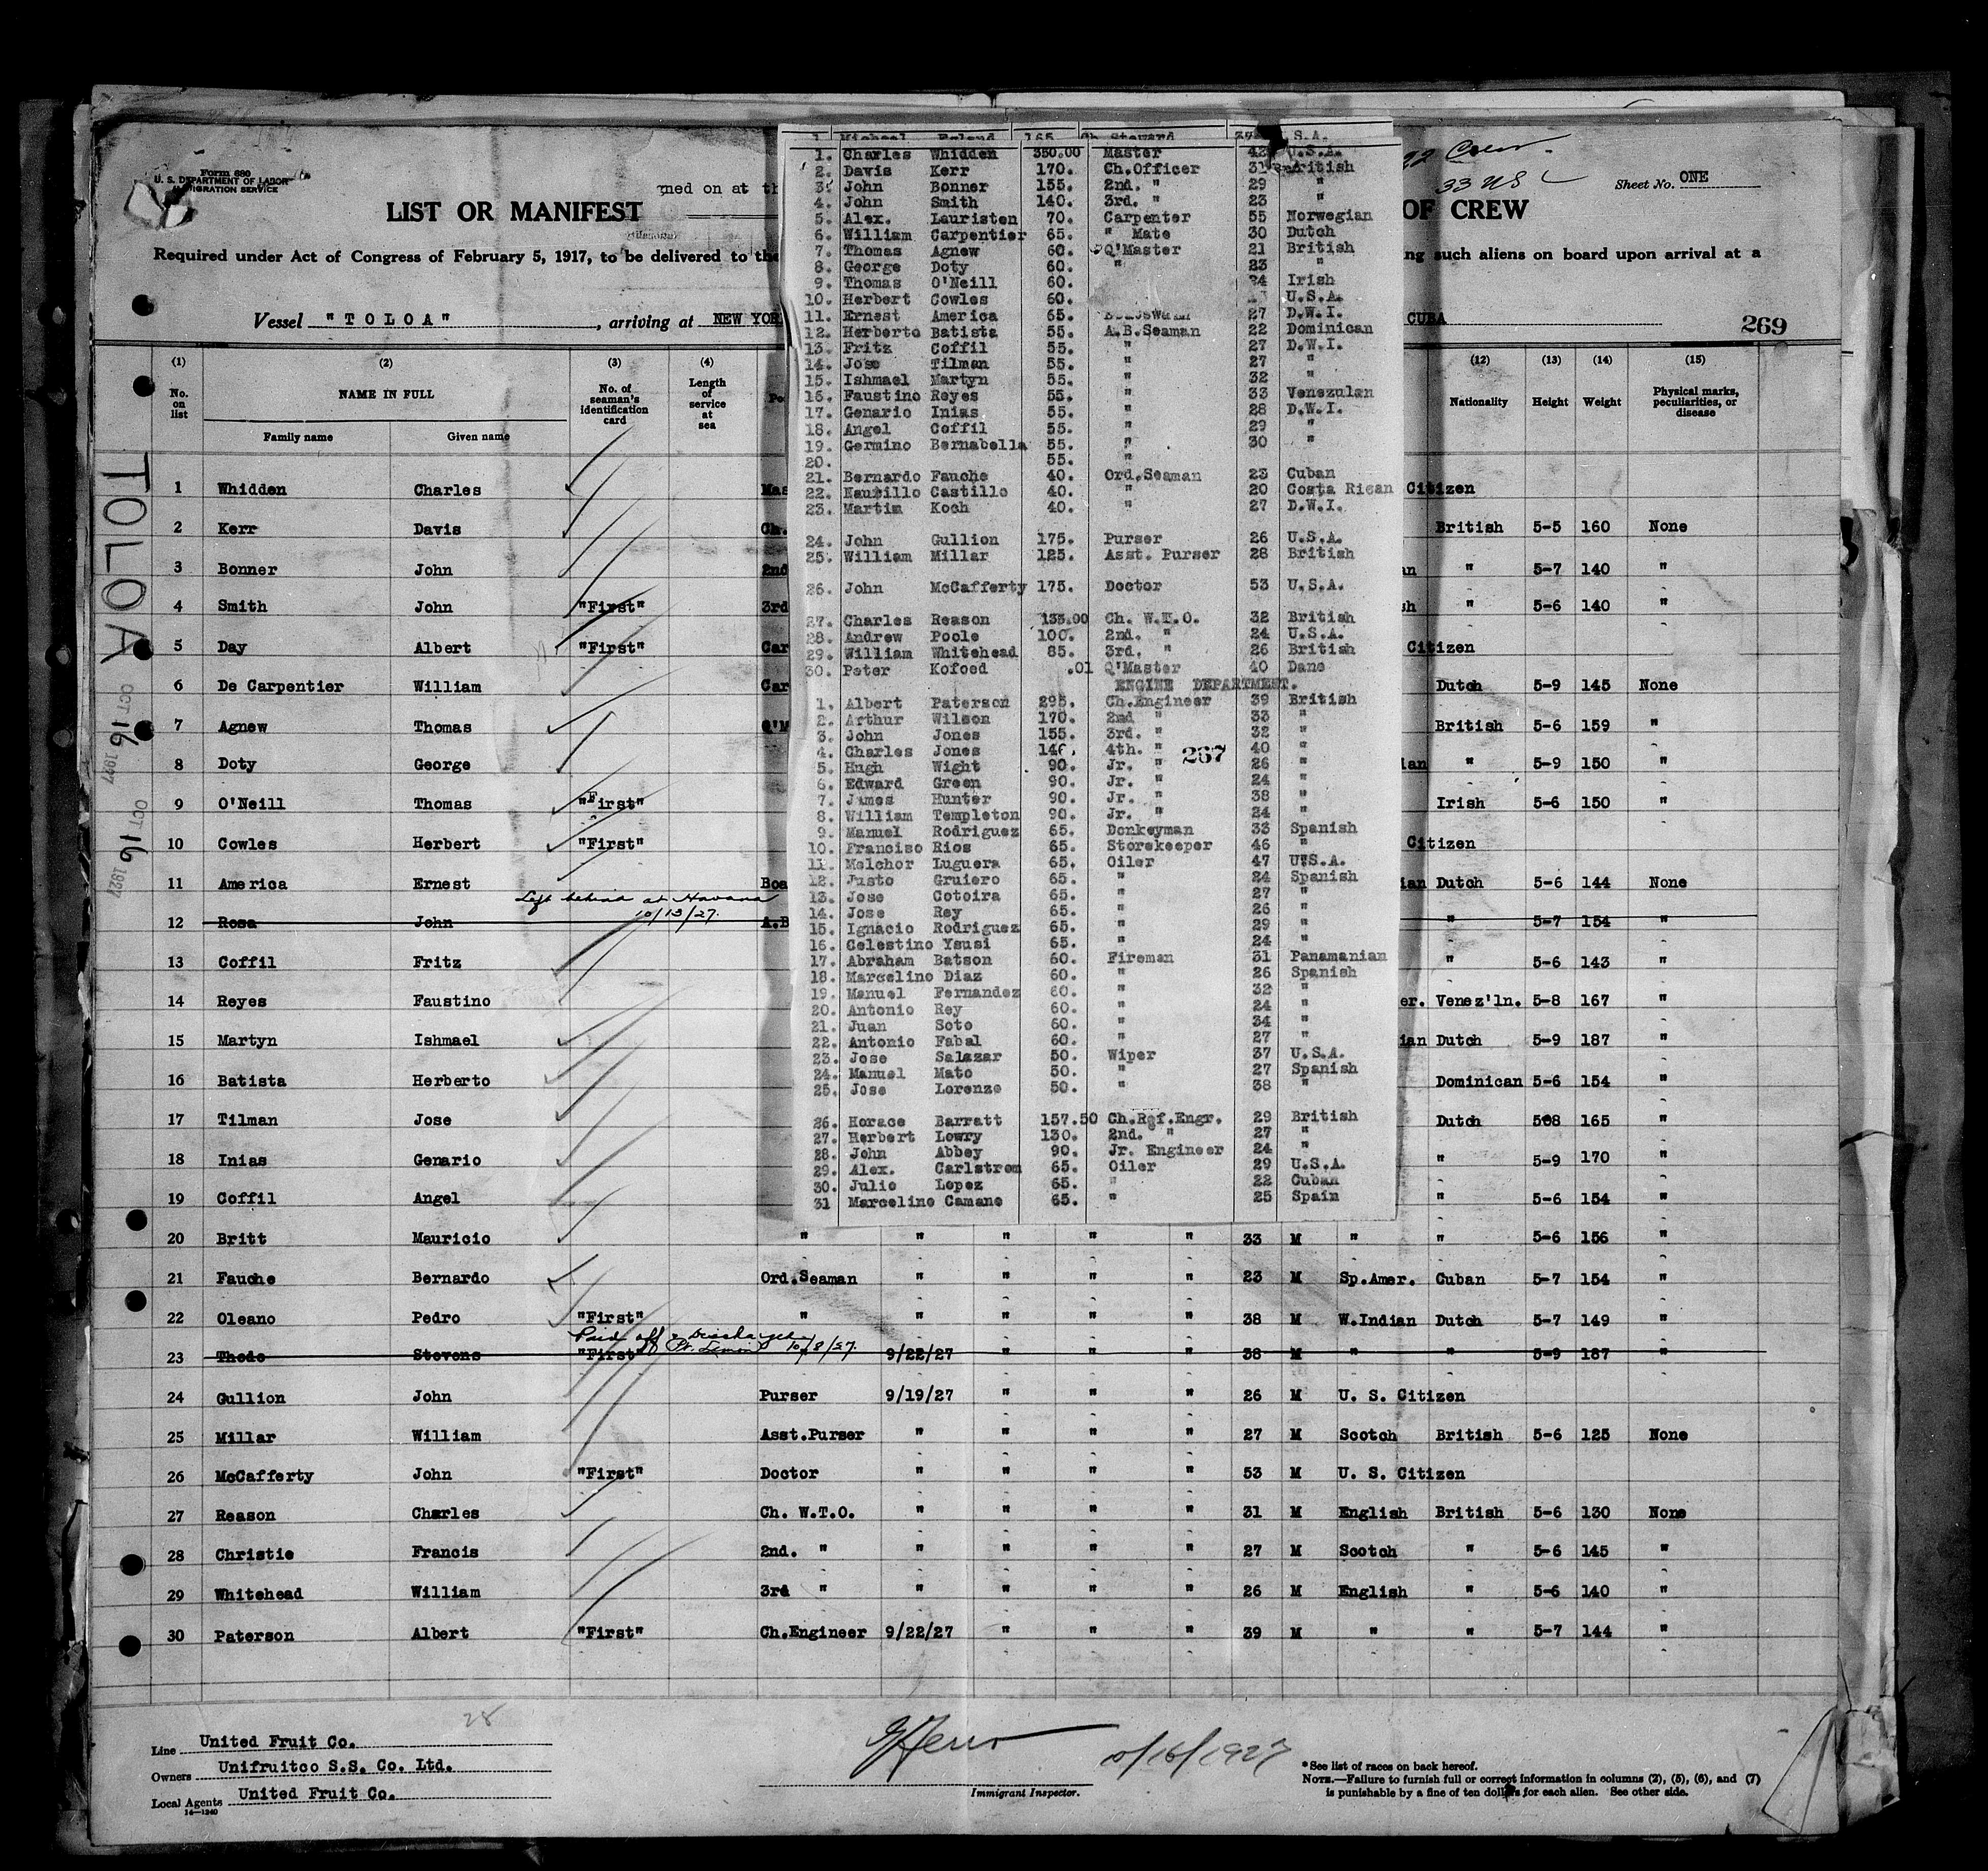 Form 680
U. S. DEPARTMENT OF LABOR
IMMIGRATION SERVICE
LIST OR MANIFEST
OF CREW
Crew
33 US
Sheet No. ONE
Required under Act of Congress of February 5, 1917, to be delivered to the
ng such aliens on board upon arrival at a
Vessel "TOLOA", arriving at NEW YOR
CUBA
269
ned on at th
1. Michael Boland 165. Ch. Steward S.A.
1. Charles Whidden 350.00 Master 42 U.S.A.
2. Davis Kerr 170. Ch.Officer 31 British
3. John Bonner 155. 2nd. " 29 "
4. John Smith 140. 3rd. " 23 "
5. Alex. Lauristen 70. Carpenter 55 Norwegian
6. William Carpentier 65. " Mate 30 Dutch
7. Thomas Agnew 60. Q'Master 21 British
8. George Doty 60. " 23 "
9. Thomas O'Neill 60. 24 Irish
10. Herbert Cowles 60. U.S.A.
11. Ernest America 65. 27 D.W.I.
12. Herberto Batista 55. A.B.Seaman 22 Dominican
13. Fritz Coffil 55. " 27 D.W.I.
14. Jose Tilman 55. " 27 "
15. Ishmael Martyn 55. " 32 "
16. Faustino Reyes 55. " 33 Venezulan
17. Genario Inias 55. " 28 D.W.I.
18. Angel Coffil 55. " 29 "
19. Germino Bernabella 55. " 30 "
20. 55. "
21. Bernardo Fauche 40. Ord.Seaman 23 Cuban
22. Naurillo Castillo 40. " 20 Costa Rican
23. Martin Koch 40. " 27 D.W.I.
24. John Gullion 175. Purser 26 U.S.A.
25. William Millar 125. Asst. Purser 28 British
26. John McCafferty 175. Doctor 53 U.S.A.
27. Charles Reason 135.00 Ch. W.T.O. 32 British
28. Andrew Poole 100. 2nd. " 24 U.S.A.
29. William Whitehead 85. 3rd. " 26 British
30. Peter Kofoed .01 Q'Master 40 Dane
ENGINE DEPARTMENT.
1. Albert Paterson 295. Ch.Engineer 39 British
2. Arthur Wilson 170. 2nd " 33 "
3. John Jones 155. 3rd. " 32 "
4. Charles Jones 146. 4th. " 40 "
267
5. Hugh Wight 90. Jr. " 26 "
6. Edward Green 90. Jr. " 24 "
7. James Hunter 90. Jr. " 38 "
8. William Templeton 90. Jr. " 24 "
9. Manuel Rodriguez 65. Donkeyman 33 Spanish
10. Franciso Rios 65. Storekeeper 46 "
11. Melchor Luguera 65. Oiler 47 U.S.A.
12. Justo Gruiero 65. " 24 Spanish
13. Jose Cotoira 65. " 27 "
14. Jose Rey 65. " 26 "
15. Ignacio Rodriguez 65. " 29 "
16. Celestino Ysusi 65. " 24 "
17. Abraham Batson 60. Fireman 31 Panamanian
18. Marcelino Diaz 60. " 26 Spanish
19. Manuel Fernandez 60. " 32 "
20. Antonio Rey 60. " 24 "
21. Juan Soto 60. " 34 "
22. Antonio Fabal 60. " 27 "
23. Jose Salazar 50. Wiper 37 U.S.A.
24. Manuel Mato 50. " 27 Spanish
25. Jose Lorenzo 50. " 38 "
26. Horace Barratt 157.50 Ch.Ref.Engr. 29 British
27. Herbert Lowry 130. 2nd. " 27 "
28. John Abbey 90. Jr. Engineer 24 "
29. Alex. Carlstrom 65. Oiler 29 U.S.A.
30. Julio Lopez 65. " 22 Cuban
31 Marcelino Camano 65. " 25 Spain
(1) (2) (3) (4) (12) (13) (14) (15)
No. on list
NAME IN FULL
Family name Given name
No. of seaman's identification card
Length of service at sea
Po
Nationality Height Weight
Physical marks, peculiarities, or disease
TOLOA
OCT 16 1927
OCT 16 1927
1 Whidden Charles Mas Citizen
2 Kerr Davis Ch. British 5-5 160 None
3 Bonner John 2nd an " 5-7 140 "
4 Smith John "First" 3rd sh " 5-6 140 "
5 Day Albert "First" Car Citizen
6 De Carpentier William Car Dutch 5-9 145 None
7 Agnew Thomas Q'M British 5-6 159 "
8 Doty George ian " 5-9 150 "
9 O'Neill Thomas "First" Irish 5-6 150 "
10 Cowles Herbert "First" Citizen
11 America Ernest Boa ian Dutch 5-6 144 None
Left behind at Havana
10/13/27.
12 Rosa John A.B " 5-7 154 "
13 Coffil Fritz " 5-6 143 "
14 Reyes Faustino er. Venez'ln. 5-8 167 "
15 Martyn Ishmael ian Dutch 5-9 187 "
16 Batista Herberto Dominican 5-6 154 "
17 Tilman Jose Dutch 5-8 165 "
18 Inias Genario " 5-9 170 "
19 Coffil Angel " 5-6 154 "
20 Britt Mauricio " " " " " 33 M " " 5-6 156 "
21 Fauche Bernardo Ord.Seaman " " " " 23 M Sp.Amer. Cuban 5-7 154 "
22 Oleano Pedro "First" " " " " " 38 M W.Indian Dutch 5-7 149 "
Paid off & Discharged
at Pt. Limon 10/8/27.
23 Thode Stevens "First" 9/22/27 " " " 38 M " " 5-9 187 "
24 Gullion John Purser 9/19/27 " " " 26 M U. S. Citizen
25 Millar William Asst.Purser " " " " 27 M Scotch British 5-6 125 None
26 McCafferty John "First" Doctor " " " " 53 M U. S. Citizen
27 Reason Charles Ch. W.T.O. " " " " 31 M English British 5-6 130 None
28 Christie Francis 2nd. " " " " " 27 M Scotch " 5-6 145 "
29 Whitehead William 3rd " " " " " 26 M English " 5-6 140 "
30 Paterson Albert "First" Ch.Engineer 9/22/27 " " " 39 M " " 5-7 144 "
28
Line United Fruit Co.
Owners Unifruitco S.S. Co. Ltd.
Local Agents United Fruit Co.
14—1240
10/16/1927
Immigrant Inspector.
*See list of races on back hereof.
NOTE.—Failure to furnish full or correct information in columns (2), (5), (6), and (7)
is punishable by a fine of ten dollars for each alien. See other side.